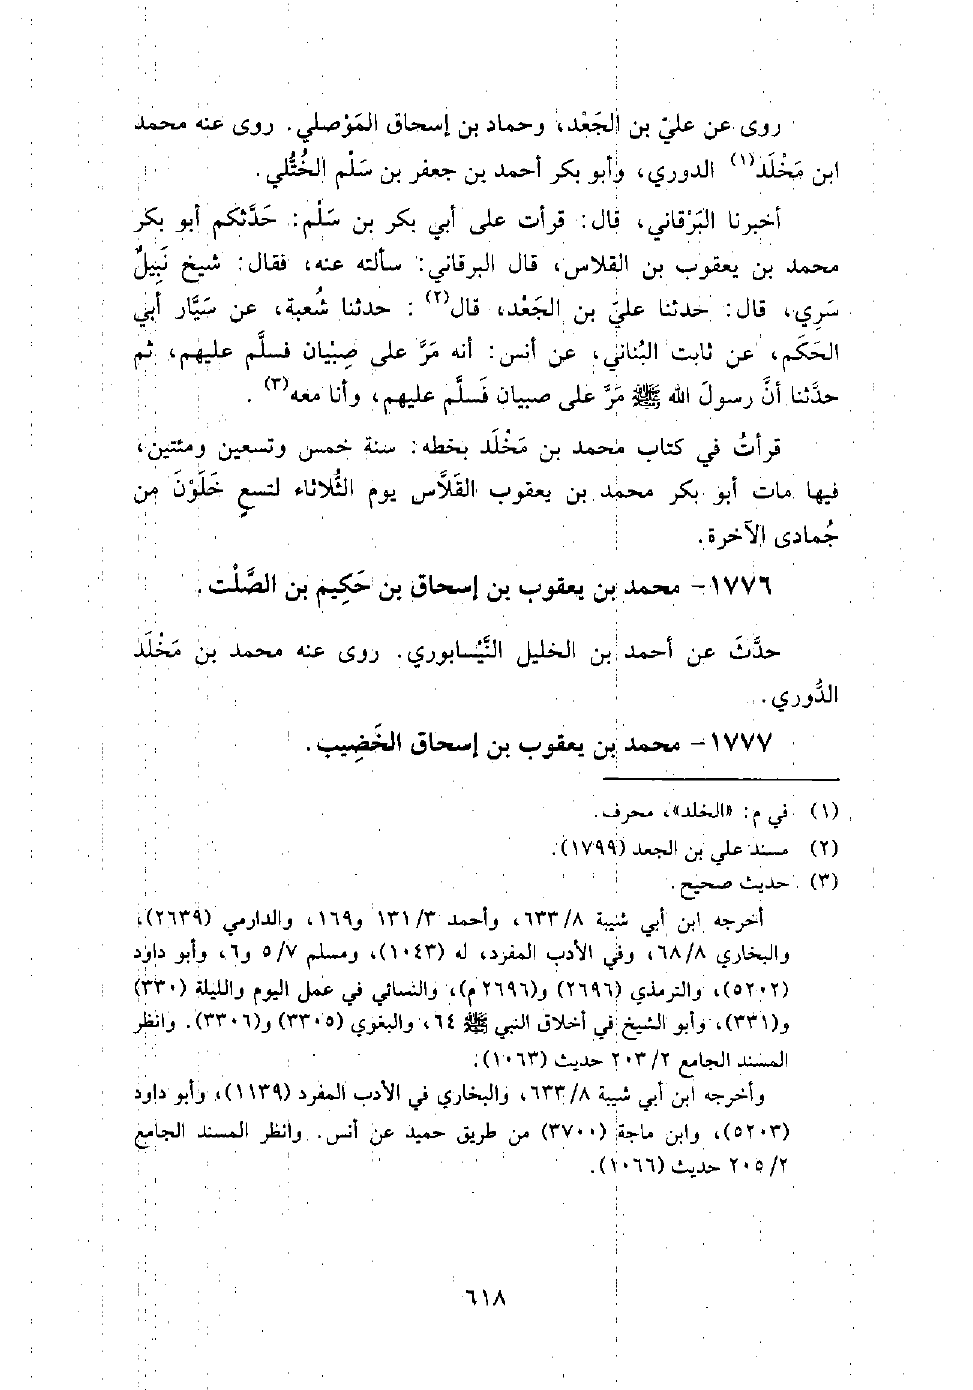 روى عن عليّ بن الجَعْد، وحماد بن إسحاق المَوْصلي. روى عنه محمد
ابن مَخْلَد(١) الدوري، وأبو بكر أحمد بن جعفر بن سَلْم الخُتُّلي.
أخبرنا البَرْقاني، قال: قرأت على أبي بكر بن سَلْم: حَدَّثكم أبو بكر
محمد بن يعقوب بن القلاس، قال البرقاني: سألته عنه، فقال: شيخ نَبِيلٌ
سَرِي، قال: حدثنا عليّ بن الجَعْد، قال(٢): حدثنا شُعبة، عن سَيَّار أبي
الحَكَم، عن ثابت البُناني، عن أنس: أنه مَرَّ على صِبْيان فسلَّم عليهم، ثم
حدَّثنا أنَّ رسولَ الله ﷺ مَرَّ على صبيان فَسلَّم عليهم، وأنا معه(٣).
قرأتُ في كتاب محمد بن مَخْلَد بخطه: سنة خمس وتسعين ومئتين،
فيها مات أبو بكر محمد بن يعقوب القَلَّاس يوم الثُّلاثاء لتسعٍ خَلَوْنَ من
جُمادى الآخرة.
١٧٧٦- محمد بن يعقوب بن إسحاق بن حَكِيم بن الصَّلْت.
حدَّثَ عن أحمد بن الخليل النَّيْسابوري. روى عنه محمد بن مَخْلَد
الدُّوري.
١٧٧٧- محمد بن يعقوب بن إسحاق الخَضِيب.
(١) في م: «الخلد»، محرف.
(٢) مسند علي بن الجعد (١٧٩٩).
(٣) حديث صحيح.
أخرجه ابن أبي شيبة ٦٣٣/٨، وأحمد ١٣١/٣ و١٦٩، والدارمي (٢٦٣٩)،
والبخاري ٦٨/٨، وفي الأدب المفرد، له (١٠٤٣)، ومسلم ٥/٧ و٦، وأبو داود
(٥٢٠٢)، والترمذي (٢٦٩٦) و(٢٦٩٦ م)، والنسائي في عمل اليوم والليلة (٣٣٠)
و(٣٣١)، وأبو الشيخ في أخلاق النبي ﷺ ٦٤، والبغوي (٣٣٠٥) و(٣٣٠٦). وانظر
المسند الجامع ٢٠٣/٢ حديث (١٠٦٣).
وأخرجه ابن أبي شيبة ٦٣٣/٨، والبخاري في الأدب المفرد (١١٣٩)، وأبو داود
(٥٢٠٣)، وابن ماجة (٣٧٠٠) من طريق حميد عن أنس. وانظر المسند الجامع
٢٠٥/٢ حديث (١٠٦٦).
٦١٨